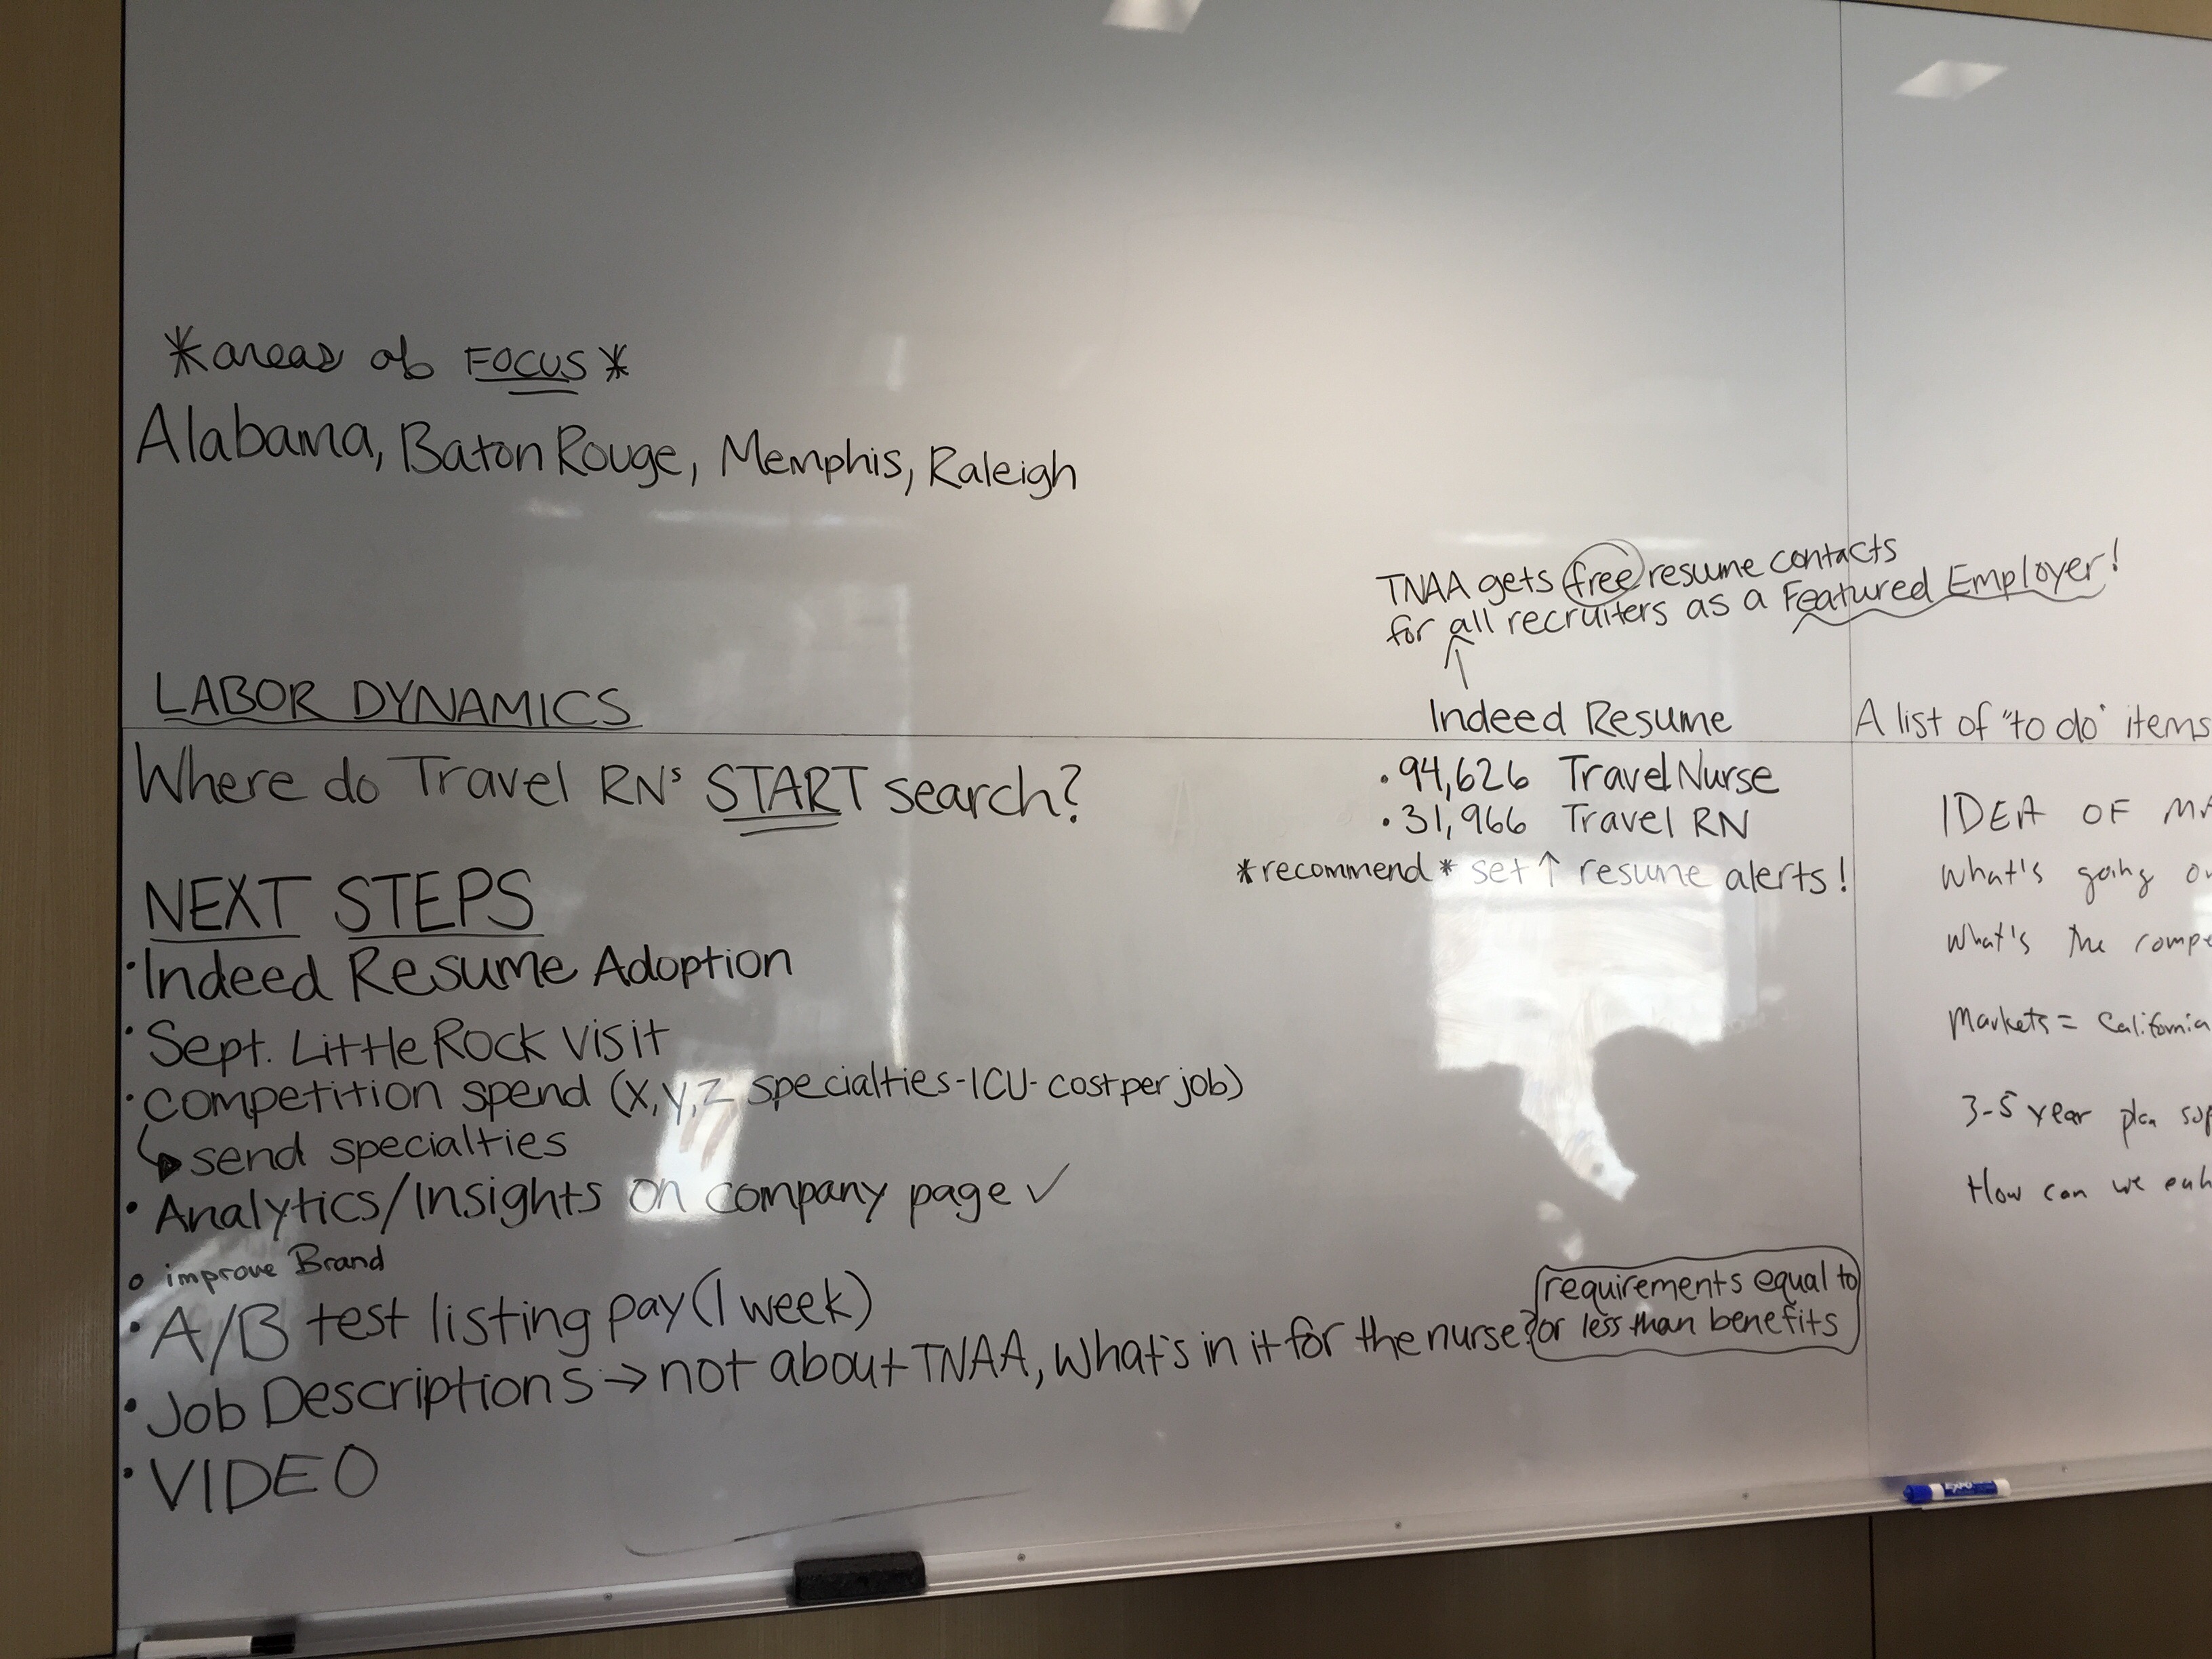 *areas of FOCUS*
Alabama, Baton Rouge, Memphis, Raleigh
TNAA gets free resume contacts
for all recruiters as a Featured Employer!
↑
Indeed Resume
• 94,626 Travel Nurse
• 31,966 Travel RN
*recommend* set ↑ resume alerts!
LABOR DYNAMICS
Where do Travel RNs START search?
NEXT STEPS
• Indeed Resume Adoption
• Sept. Little Rock visit
• competition spend (x,y,z specialties-ICU-cost per job)
↳ send specialties
• Analytics/Insights on company page ✓
o improve Brand
• A/B test listing pay (1 week)
• Job Descriptions → not about TNAA, What's in it for the nurse?
requirements equal to
or less than benefits
• VIDEO
A list of "to do" items
IDEA OF
What's going
What's the
Markets = California
3-5 year plan
How can we
EXPO